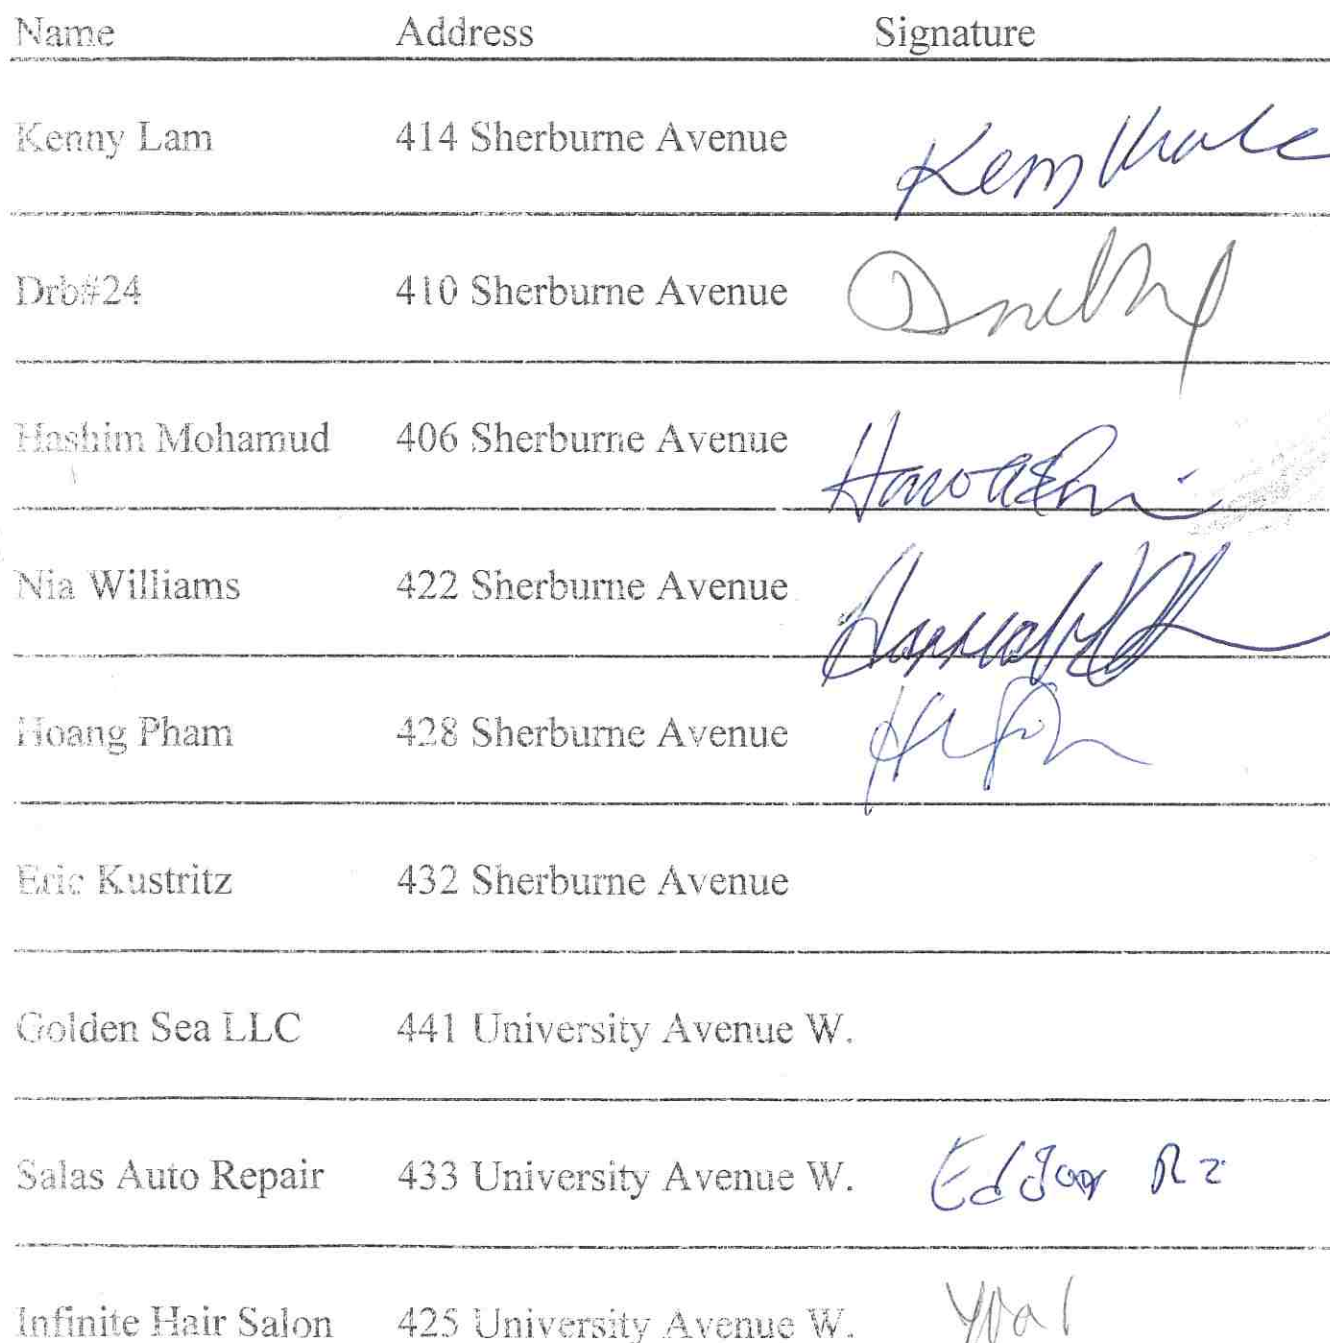 Name Address Signature
Kenny Lam 414 Sherburne Avenue
Drb#24 410 Sherburne Avenue
Hashim Mohamud 406 Sherburne Avenue
Nia Williams 422 Sherburne Avenue
Hoang Pham 428 Sherburne Avenue
Eric Kustritz 432 Sherburne Avenue
Golden Sea LLC 441 University Avenue W.
Salas Auto Repair 433 University Avenue W.
Infinite Hair Salon 425 University Avenue W.